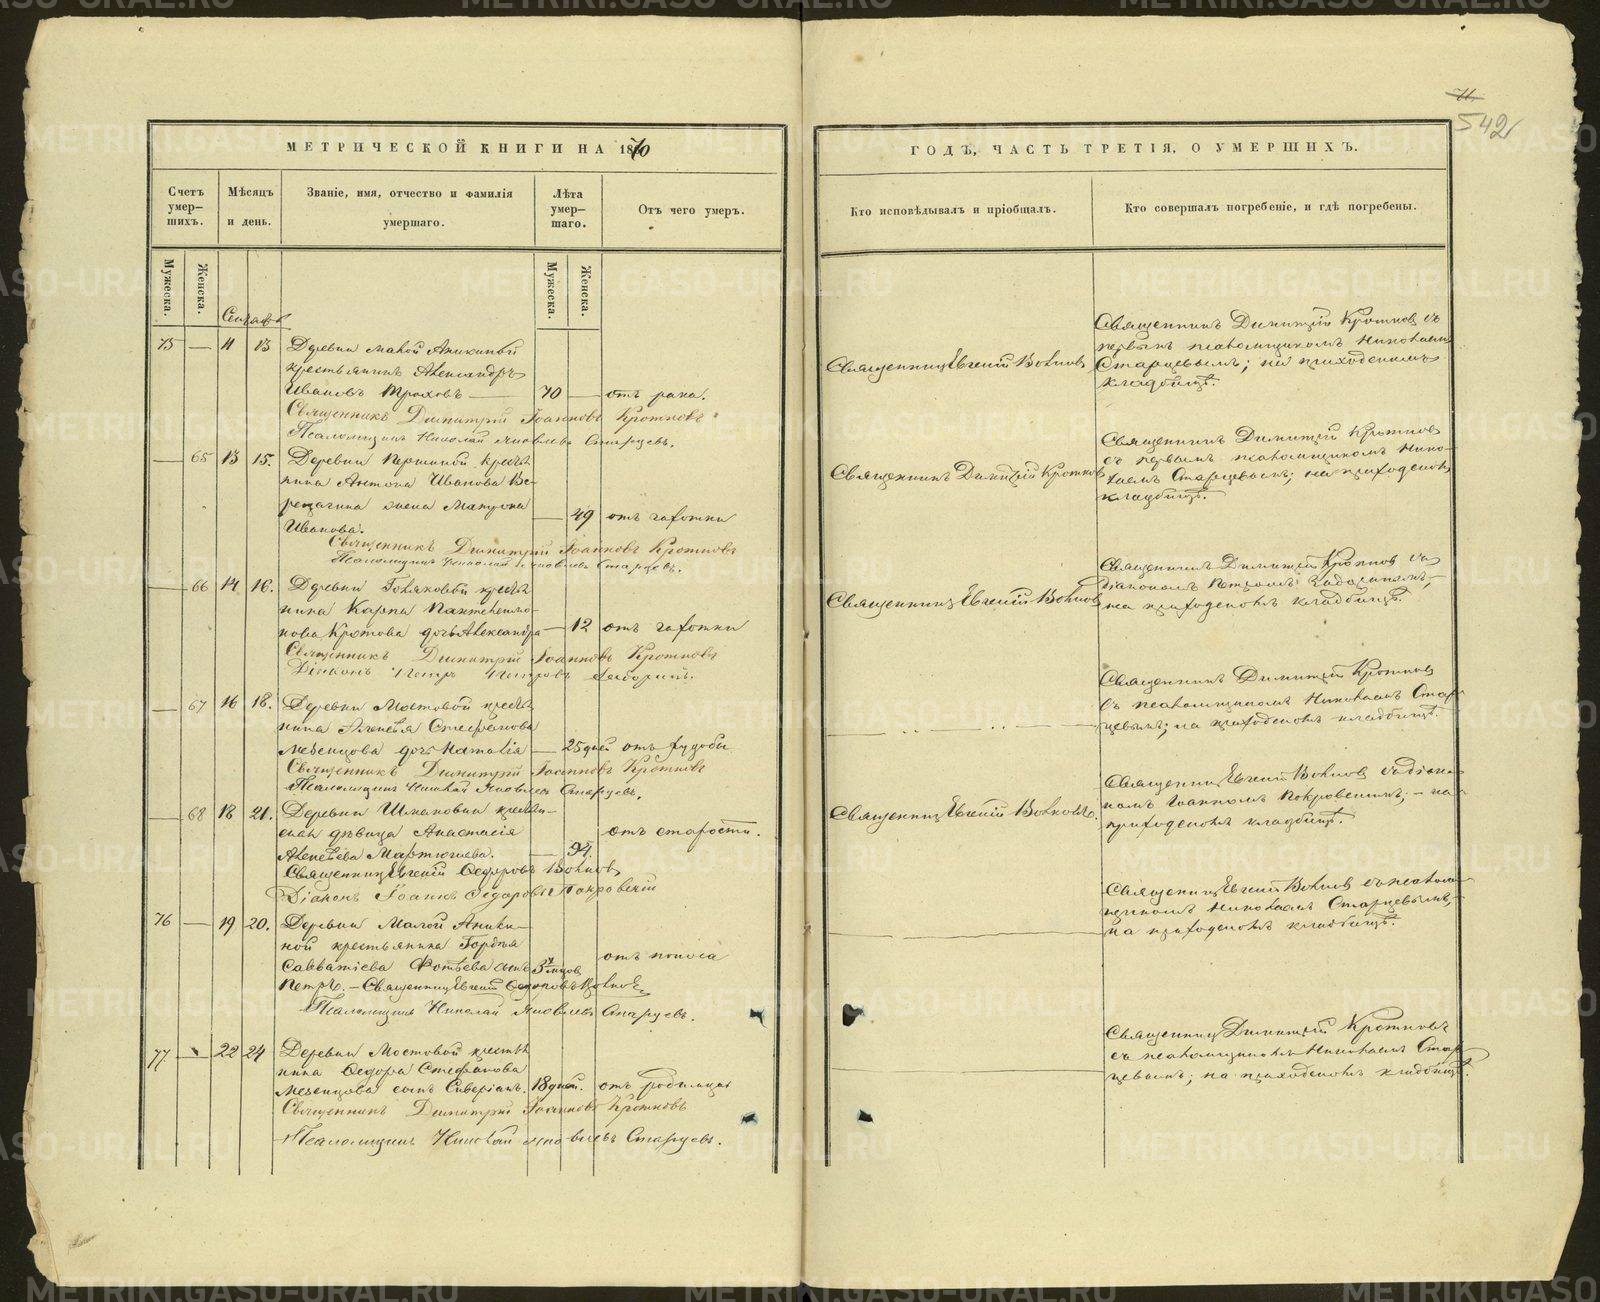 542
МЕТРИЧЕСКОЙ КНИГИ НА 1870
ГОДЪ, ЧАСТЬ ТРЕТІЯ, О УМЕРШИХЪ.
Счетъ умер-шихъ.
Мѣсяцъ и день.
Званіе, имя, отчество и фамилія
умершаго.
Лѣта умер-шаго.
Отъ чего умеръ.
Кто исповѣдывалъ и пріобщалъ.
Кто совершалъ погребеніе, и гдѣ погребены.
Мужеска.
Женска.
Мужеска.
Женска.
75 — 11 13 Деревни Малой Аникиной
крестьянинъ Александръ
Ивановъ 70 — отъ рака.
Священникъ Евгеній Волковъ
Священникъ Димитрій Кротковъ съ
первымъ псаломщикомъ Николаемъ
Старцевымъ; на приходскомъ
кладбищѣ.
Священникъ Димитрій Іоанновъ Кротковъ
Псаломщикъ Николай Яковлевъ Старцевъ.
— 65 13 15. Деревни Першиной кресть
янина Антона Иванова Ве-
рещагина жена Матрона
Иванова. — 49 отъ чахотки
Священникъ Димитрій Кротковъ
Священникъ Димитрій Кротковъ
съ первымъ псаломщикомъ Нико-
лаемъ Старцевымъ; на приходскомъ
кладбищѣ.
Священникъ Димитрій Іоанновъ Кротковъ
Псаломщикъ Николай Яковлевъ Старцевъ.
— 66 14 16. Деревни кресть
янина Карпа
нова Кротова дочь Александра — 12 отъ чахотки
Священникъ Евгеній Волковъ
Священникъ Димитрій Кротковъ съ
діакономъ Петромъ
на приходскомъ кладбищѣ.
Священникъ Димитрій Іоанновъ Кротковъ
Діаконъ Петръ Петровъ
— 67 16 18. Деревни Мостовой кресть
янина Алексѣя Стефанова
Мезенцова дочь Наталія — 25 дней отъ худобы
Священникъ Димитрій Кротковъ
съ псаломщикомъ Николаемъ Стар
цевымъ; на приходскомъ кладбищѣ.
Священникъ Димитрій Іоанновъ Кротковъ
Псаломщикъ Николай Яковлевъ Старцевъ.
— 68 18 21. Деревни кресть-
ская дѣвица Анастасія
Алексѣева Мартюшева. — 94. отъ старости.
Священникъ Евгеній Волковъ.
Священникъ Евгеній Волковъ съ діако-
номъ Іоанномъ Покровскимъ; — на
приходскомъ кладбищѣ.
Священникъ Евгеній Ѳедоровъ Волковъ
Діаконъ Іоаннъ Ѳедоровъ Покровскій
76 — 19 20. Деревни Малой Аники-
ной крестьянина Гордѣя
Савватіева Фотѣева сынъ отъ поноса
Петръ. — Священникъ Евгеній Ѳедоровъ Волковъ
Псаломщикъ Николай Яковлевъ Старцевъ.
Священникъ Евгеній Волковъ съ псалом
щикомъ Николаемъ Старцевымъ,
на приходскомъ кладбищѣ.
77. — 22 24 Деревни Мостовой кресть
янина Ѳедора Стефанова
Мезенцова сынъ Сиверіанъ. 18 дней. отъ родимца
Священникъ Димитрій Кротковъ
съ псаломщикомъ Николаемъ Стар
цевымъ; на приходскомъ кладбищѣ.
Священникъ Димитрій Іоанновъ Кротковъ
Псаломщикъ Николай Яковлевъ Старцевъ.
METRIKI.GASO-URAL.RU